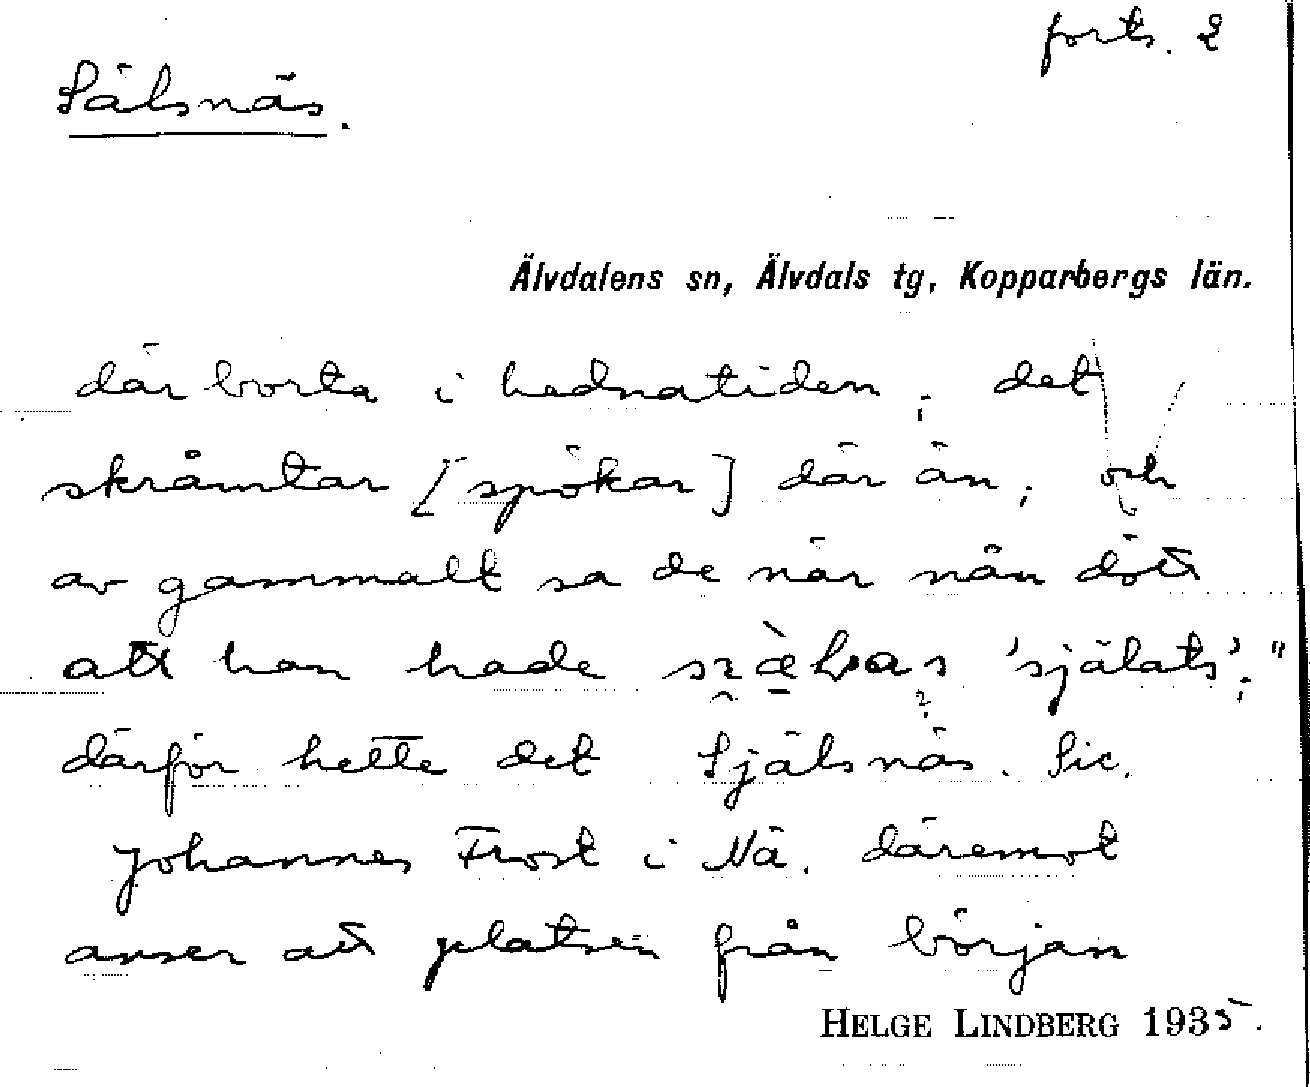 forts. 2
Sälsnäs.
Älvdalens sn, Älvdals tg, Kopparbergs län.
där borta i hednatiden; det
skråmtar [spökar] där än; och
av gammalt sa de när nån dött
att han hade 'själats';"
därför hette det Själsnäs. Sic.
Johannes Frost i Nä. däremot
anser att platsen från början
HELGE LINDBERG 1935.